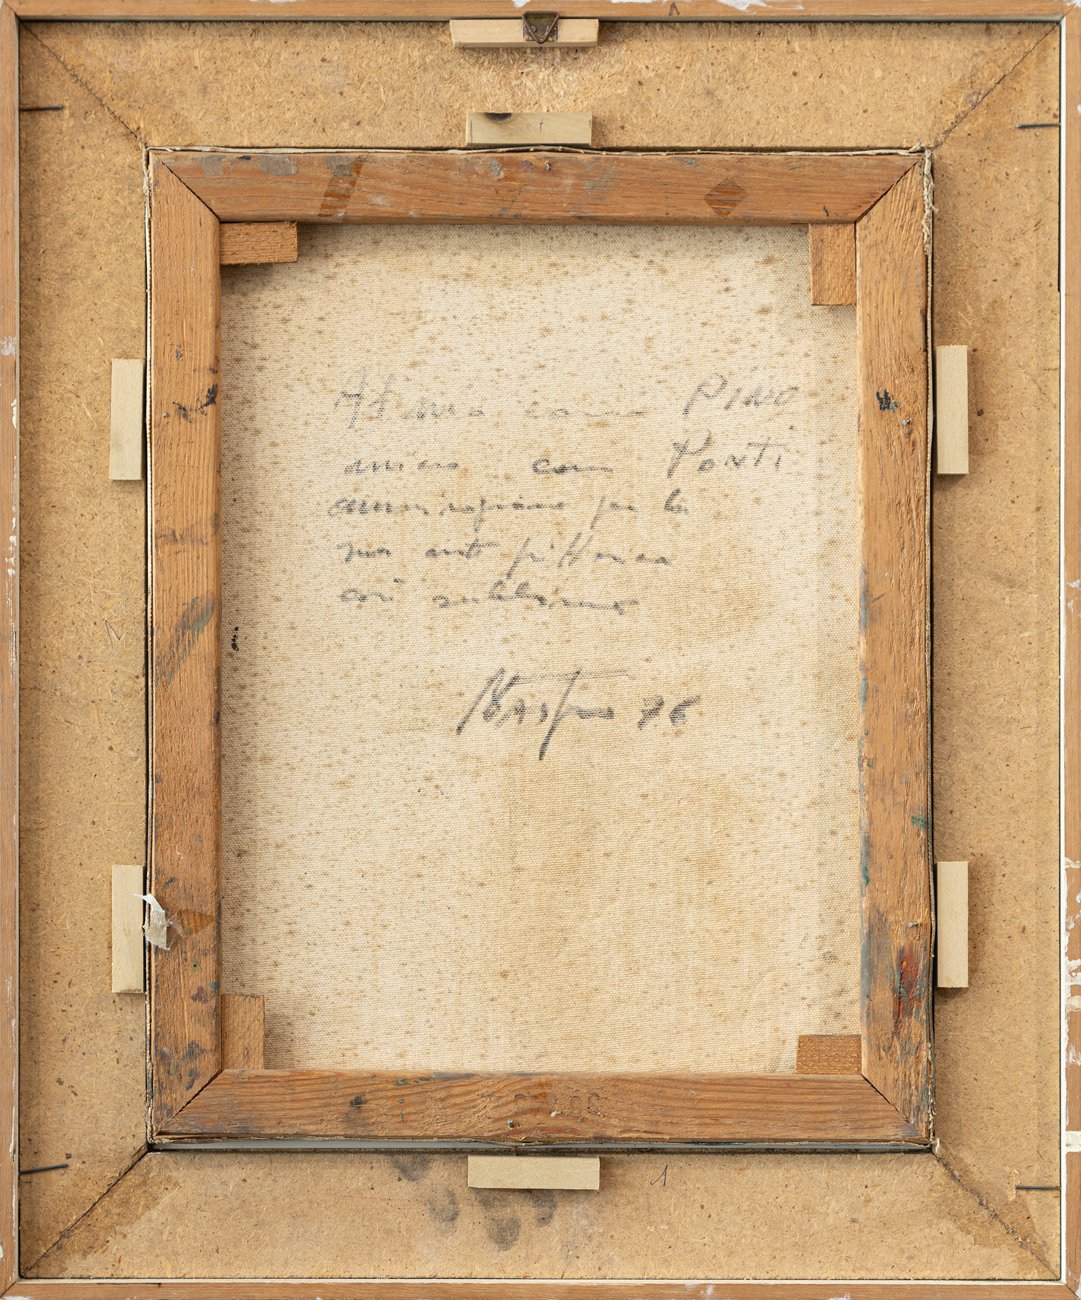 Al mio caro PINO
amico con PONTI
ammirazione per la
sua arte pittorica
così sublime
76
1